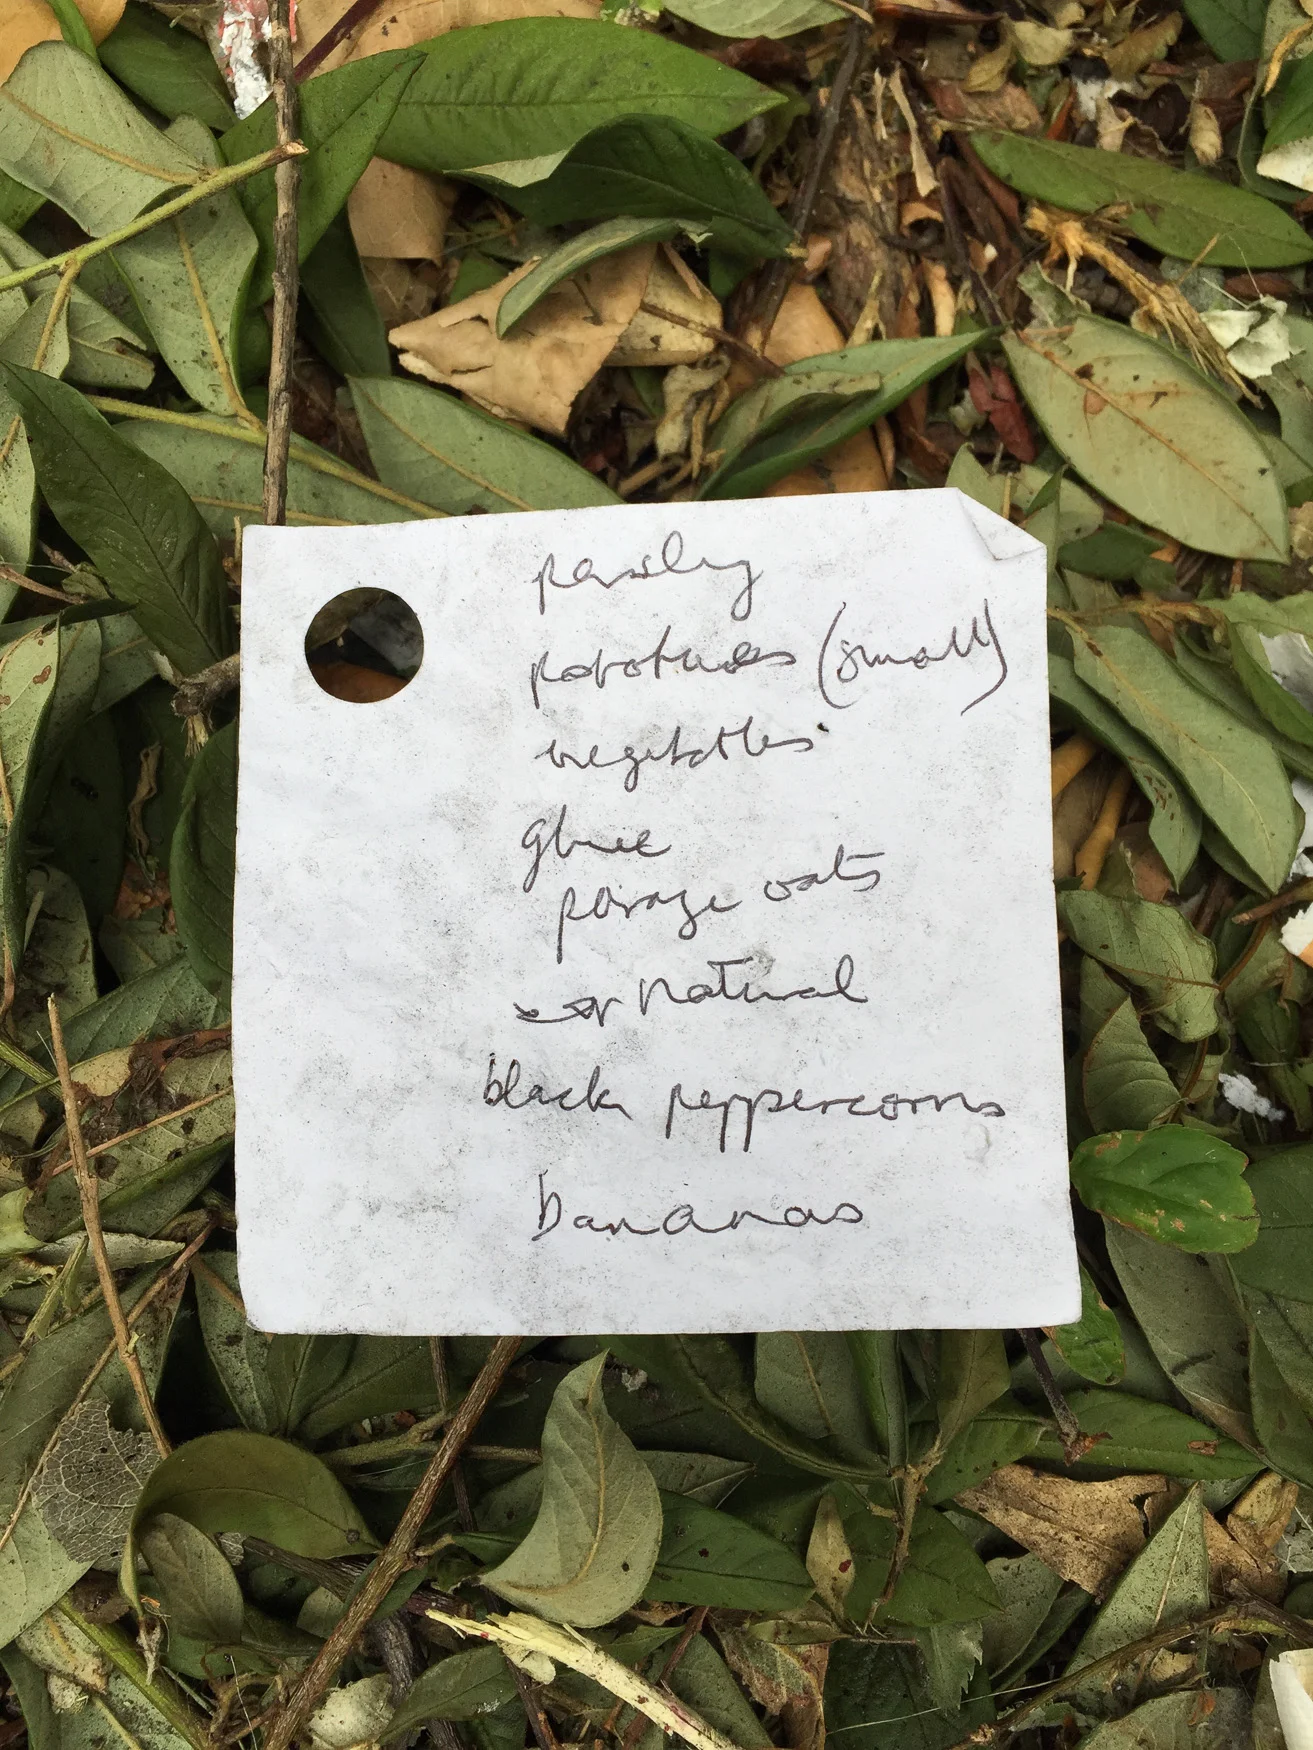 parsley
potatoes (small)
vegetables
glue
porage oats
natural
black peppercorns
bananas